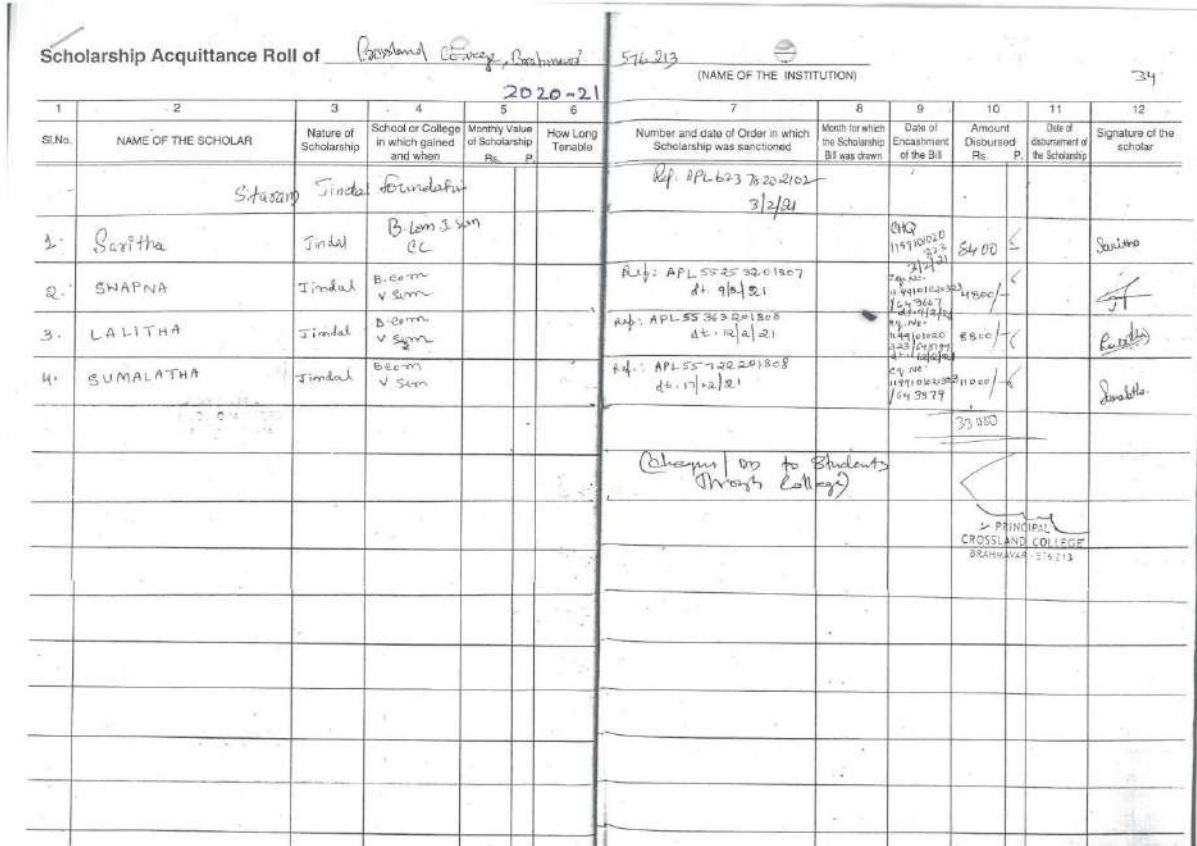 Scholarship Acquittance Roll of Crossland College, Brahmavar 576 213
(NAME OF THE INSTITUTION)
34
2020-21
1 2 3 4 5 6 7 8 9 10 11 12
Sl.No. NAME OF THE SCHOLAR Nature of Scholarship School or College in which gained and when Monthly Value of Scholarship Rs. P. How Long Tenable Number and date of Order in which Scholarship was sanctioned Month for which the Scholarship Bill was drawn Date of Encashment of the Bill Amount Disbursed Rs. P. Date of disbursement of the Scholarship Signature of the scholar
Sitaram Jindal Foundation
Ref. APL
3/2/21
1. Saritha Jindal B.Com I Sem CC CHQ 3/2/21 8400 Saritha
2. SWAPNA Jindal B.com V Sem Ref: APL 55253201807 4800/-
3. LALITHA Jindal B.com V Sem Ref: APL 55363201808 8800/- Lalitha
4. SUMALATHA Jindal Bcom V Sem Ref.: APL 55722201808 11000/- Sumalatha
33000
(Cheques/DD to Students
Through College)
PRINCIPAL
CROSSLAND COLLEGE
BRAHMAVAR - 576 213